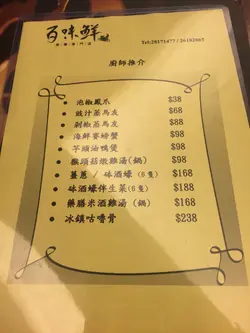 百味鮮
Tel:28171477 / 26102865
廚師推介
泡椒鳳爪 $38
豉汁蒸馬友 $68
剁椒蒸馬友 $68
海鮮賽螃蟹 $98
芋頭油鴨煲 $98
猴頭菇燉雞湯(鍋) $98
薑蔥 / 砵酒蠔 (8隻) $168
砵酒蠔伴生菜(6隻) $188
藥膳米酒雞湯 (鍋) $168
冰鎮咕嚕骨 $238